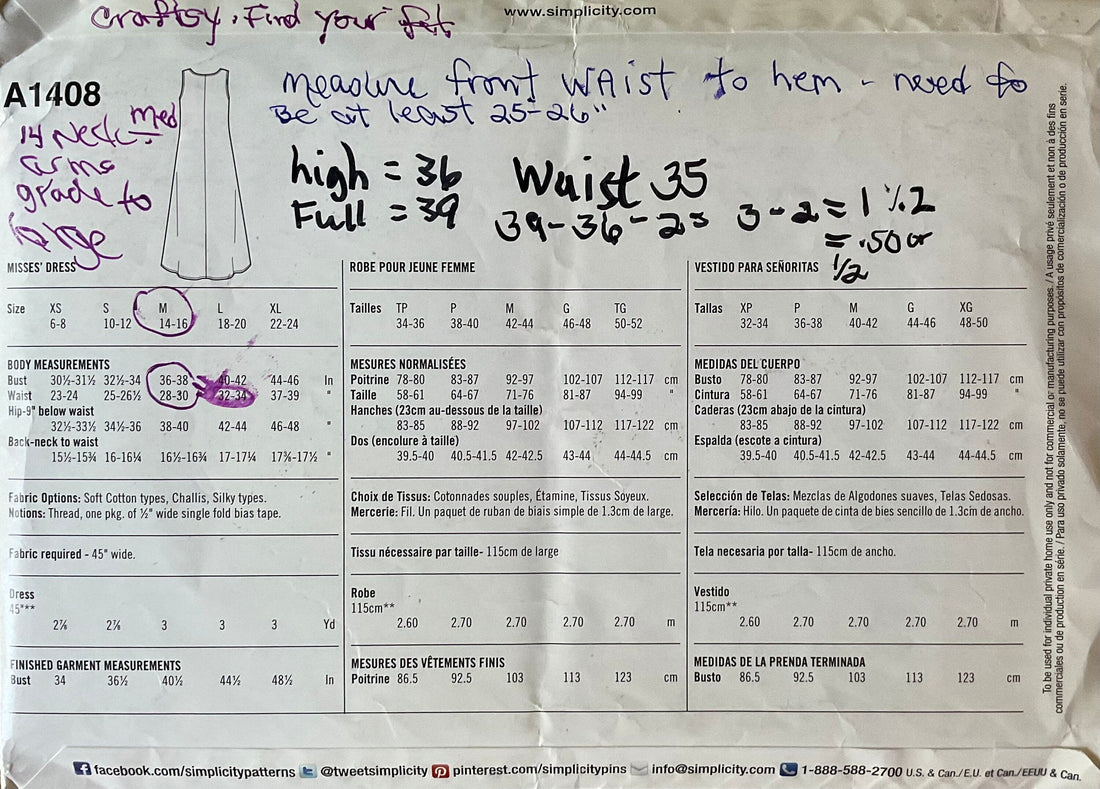 www.simplicity.com
Craftsy. Find your fit
A1408
measure front WAIST to hem - need to
Be at least 25-26"
14 Neck - med
arms
grade to
large
high = 36
Full = 39
Waist 35
39-36-2=
3-2= 1 ÷ 2
= .50 or
1/2
MISSES' DRESS
Size XS S M L XL
6-8 10-12 14-16 18-20 22-24
BODY MEASUREMENTS
Bust 30½-31½ 32½-34 36-38 40-42 44-46 In
Waist 23-24 25-26½ 28-30 32-34 37-39 "
Hip-9" below waist
32½-33½ 34½-36 38-40 42-44 46-48 "
Back-neck to waist
15½-15¾ 16-16¼ 16½-16¾ 17-17¼ 17⅜-17½ "
Fabric Options: Soft Cotton types, Challis, Silky types.
Notions: Thread, one pkg. of ½" wide single fold bias tape.
Fabric required - 45" wide.
Dress
45"**
2⅞ 2⅞ 3 3 3 Yd
FINISHED GARMENT MEASUREMENTS
Bust 34 36½ 40½ 44½ 48½ In
ROBE POUR JEUNE FEMME
Tailles TP P M G TG
34-36 38-40 42-44 46-48 50-52
MESURES NORMALISÉES
Poitrine 78-80 83-87 92-97 102-107 112-117 cm
Taille 58-61 64-67 71-76 81-87 94-99 "
Hanches (23cm au-dessous de la taille)
83-85 88-92 97-102 107-112 117-122 cm
Dos (encolure à taille)
39.5-40 40.5-41.5 42-42.5 43-44 44-44.5 cm
Choix de Tissus: Cotonnades souples, Étamine, Tissus Soyeux.
Mercerie: Fil. Un paquet de ruban de biais simple de 1.3cm de large.
Tissu nécessaire par taille- 115cm de large
Robe
115cm**
2.60 2.70 2.70 2.70 2.70 m
MESURES DES VÊTEMENTS FINIS
Poitrine 86.5 92.5 103 113 123 cm
VESTIDO PARA SEÑORITAS
Tallas XP P M G XG
32-34 36-38 40-42 44-46 48-50
MEDIDAS DEL CUERPO
Busto 78-80 83-87 92-97 102-107 112-117 cm
Cintura 58-61 64-67 71-76 81-87 94-99 "
Caderas (23cm abajo de la cintura)
83-85 88-92 97-102 107-112 117-122 cm
Espalda (escote a cintura)
39.5-40 40.5-41.5 42-42.5 43-44 44-44.5 cm
Selección de Telas: Mezclas de Algodones suaves, Telas Sedosas.
Mercería: Hilo. Un paquete de cinta de bies sencillo de 1.3cm de ancho.
Tela necesaria por talla- 115cm de ancho.
Vestido
115cm**
2.60 2.70 2.70 2.70 2.70 m
MEDIDAS DE LA PRENDA TERMINADA
Busto 86.5 92.5 103 113 123 cm
To be used for individual private home use only and not for commercial or manufacturing purposes. / A usage privé seulement et non à des fins
commerciales ou de production en série. / Para uso privado solamente, no se puede utilizar con propósitos de comercialización o de producción en serie.
facebook.com/simplicitypatterns @tweetsimplicity pinterest.com/simplicitypins info@simplicity.com 1-888-588-2700 U.S. & Can./E.U. et Can./EEUU & Can.